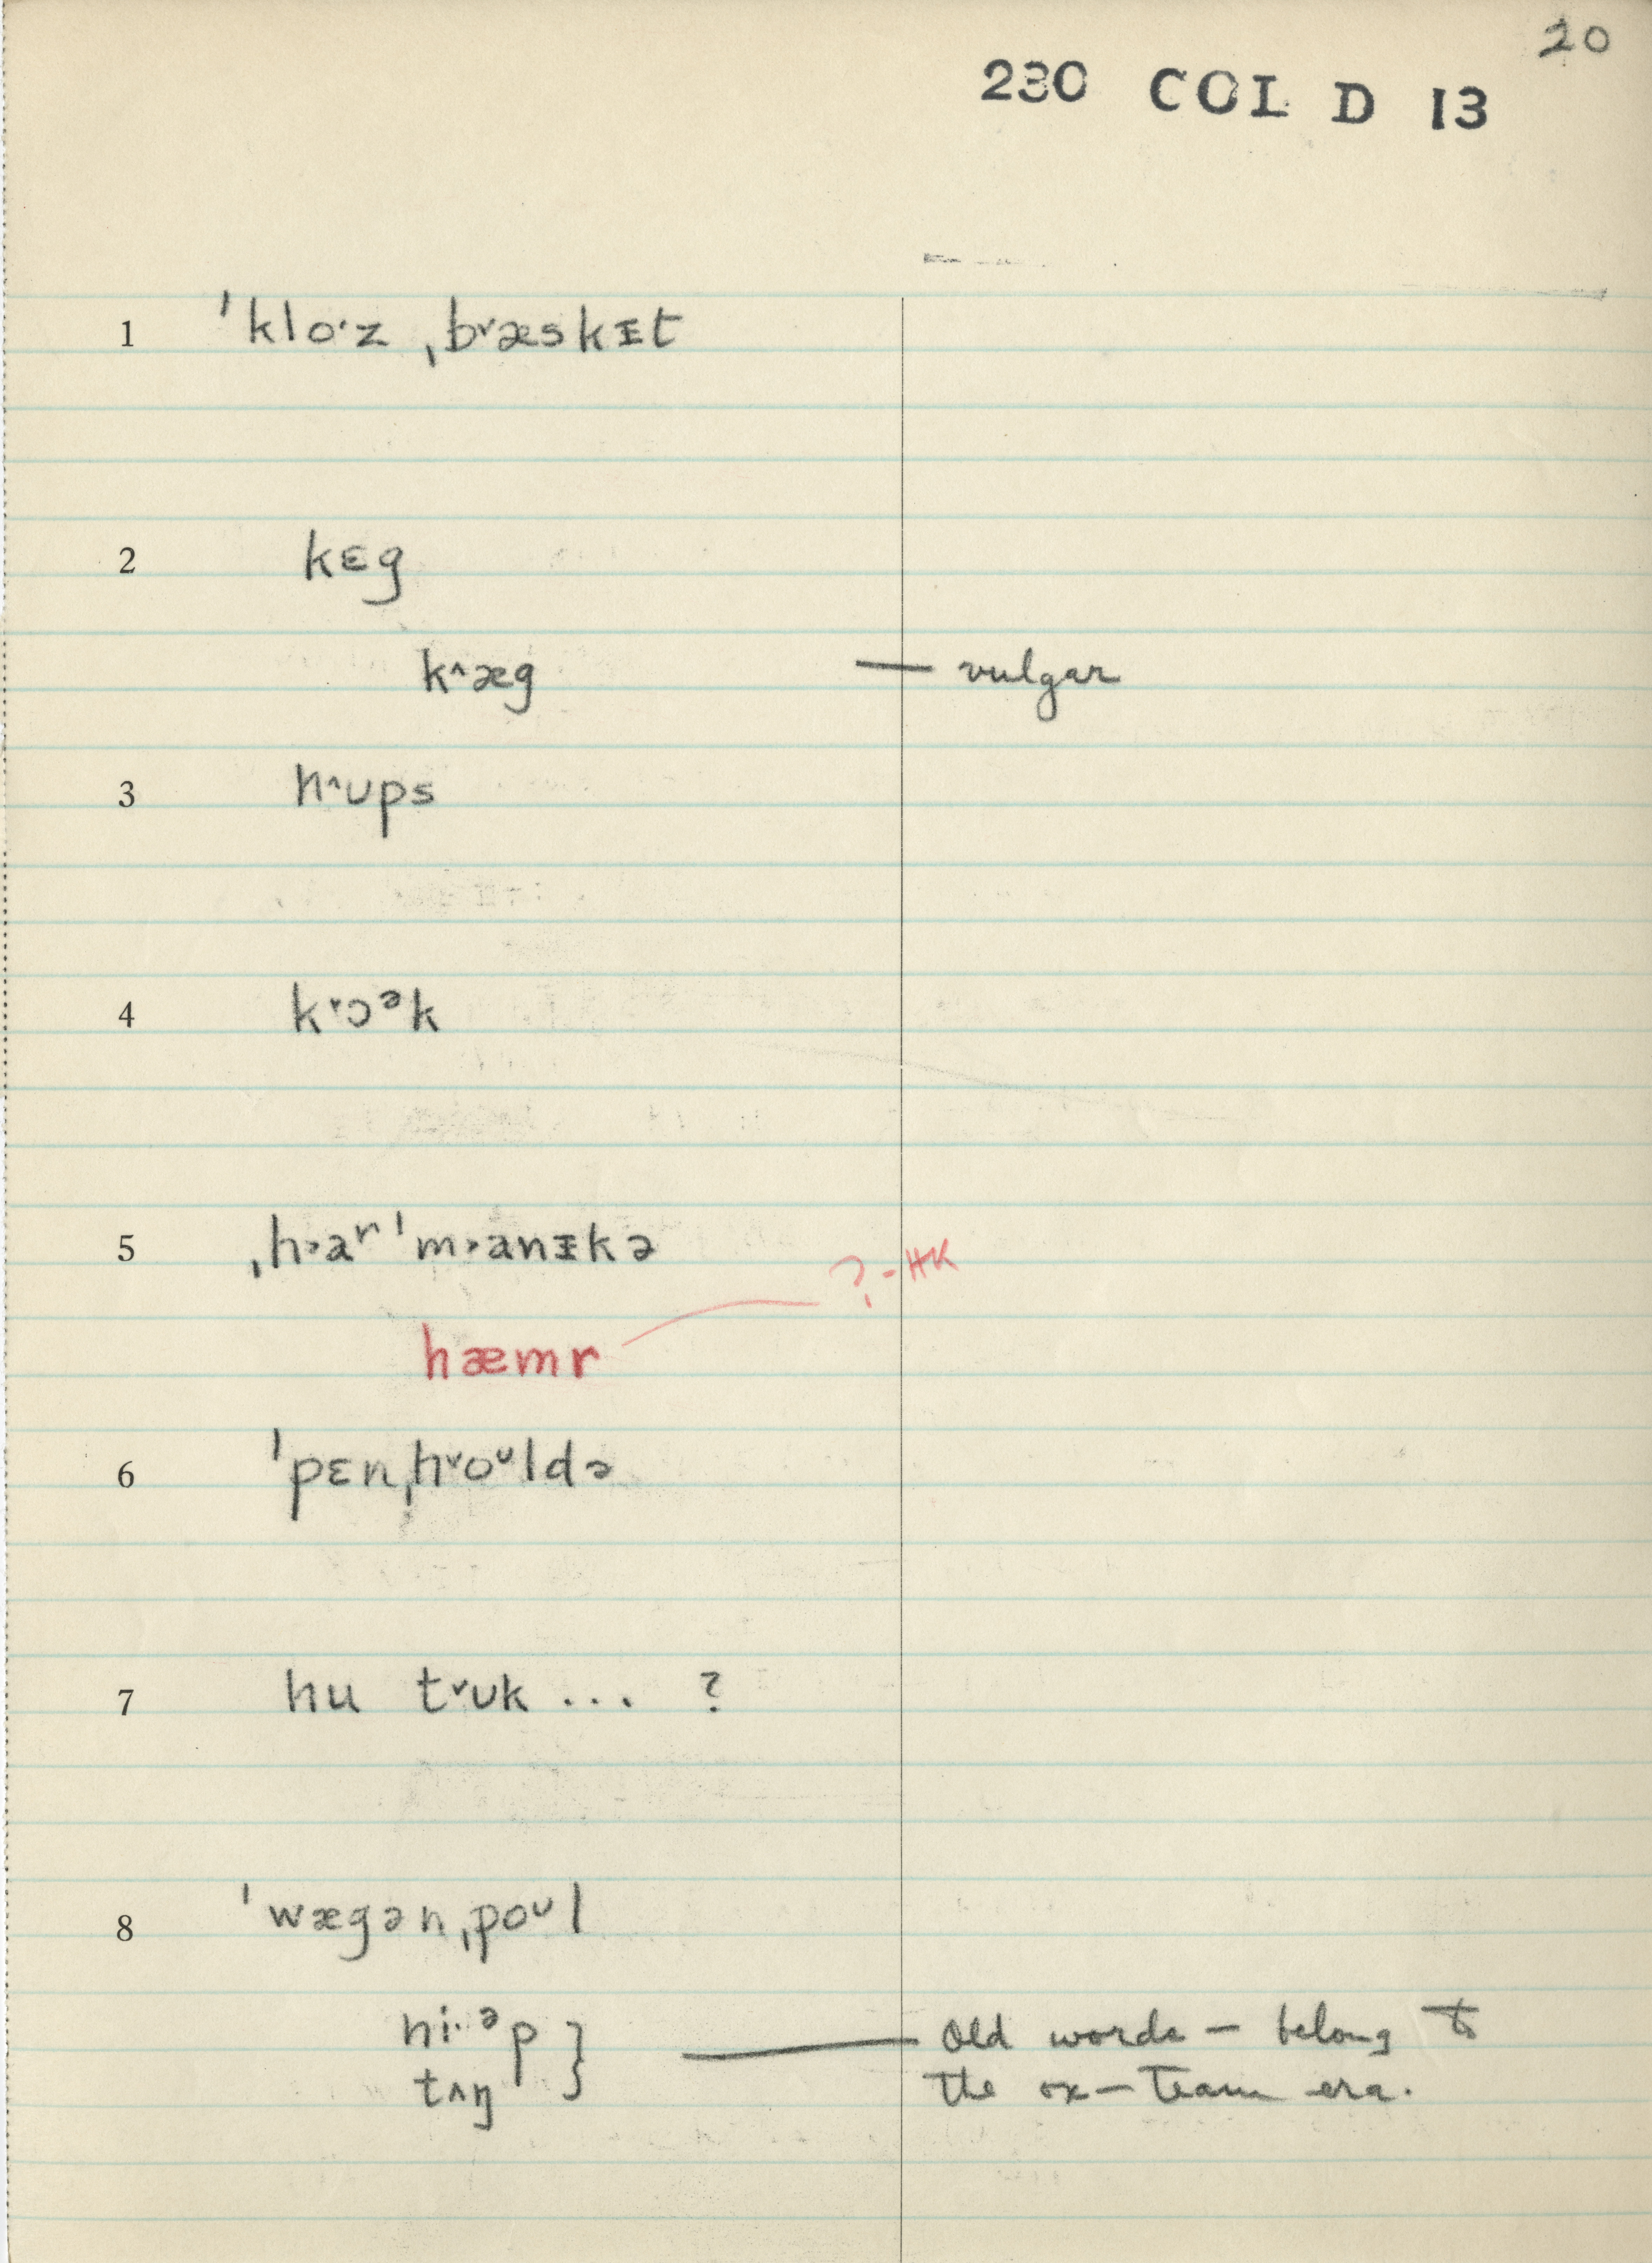 20
230 COL D 13
1 ˈkloˑz ˌb˅æskᵻt
2 kɛg
k^æg — vulgar
3 h^ʊps
4 k˅ɔᵊk
5 ˌh˃aʳˈm˃anᵻkə
?-HK
hæmr
6 ˈpɛnˌh˅oᶷldə
7 hu t˅ʊk ... ?
8 ˈwægənˌpoᶷl
ni·ᵊp } — Old words — belong to
tʌŋ the ox-team era.